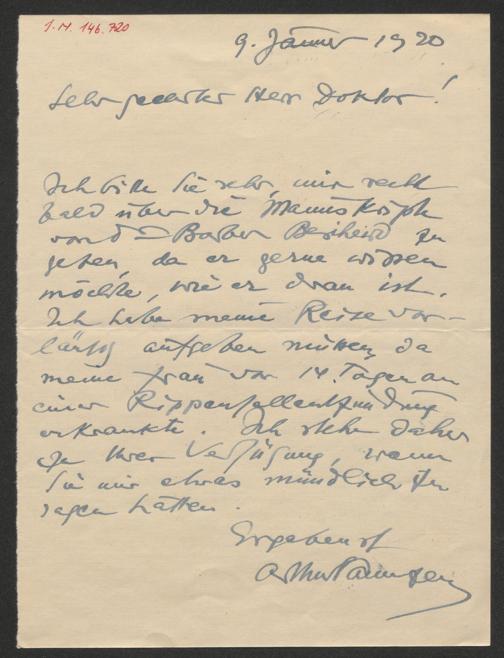 I.N. 146.720
9. Jänner 1920
Sehr geehrter Herr Doktor!
Ich bitte Sie sehr, mir recht
bald über die Manuskripte
von Barber Bescheid zu
geben, da er gerne wissen
möchte, wie er daran ist.
Ich habe meine Reise vor-
läufig aufgeben müssen, da
meine Frau vor 14 Tagen an
einer Rippenfellentzündung
erkrankte. Ich stehe daher
zu Ihrer Verfügung, wenn
Sie mir etwas mündlich zu
sagen hätten.
Ergebenst
Arthur